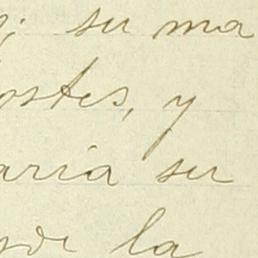 ; su ma
ostes, y
aria su
la